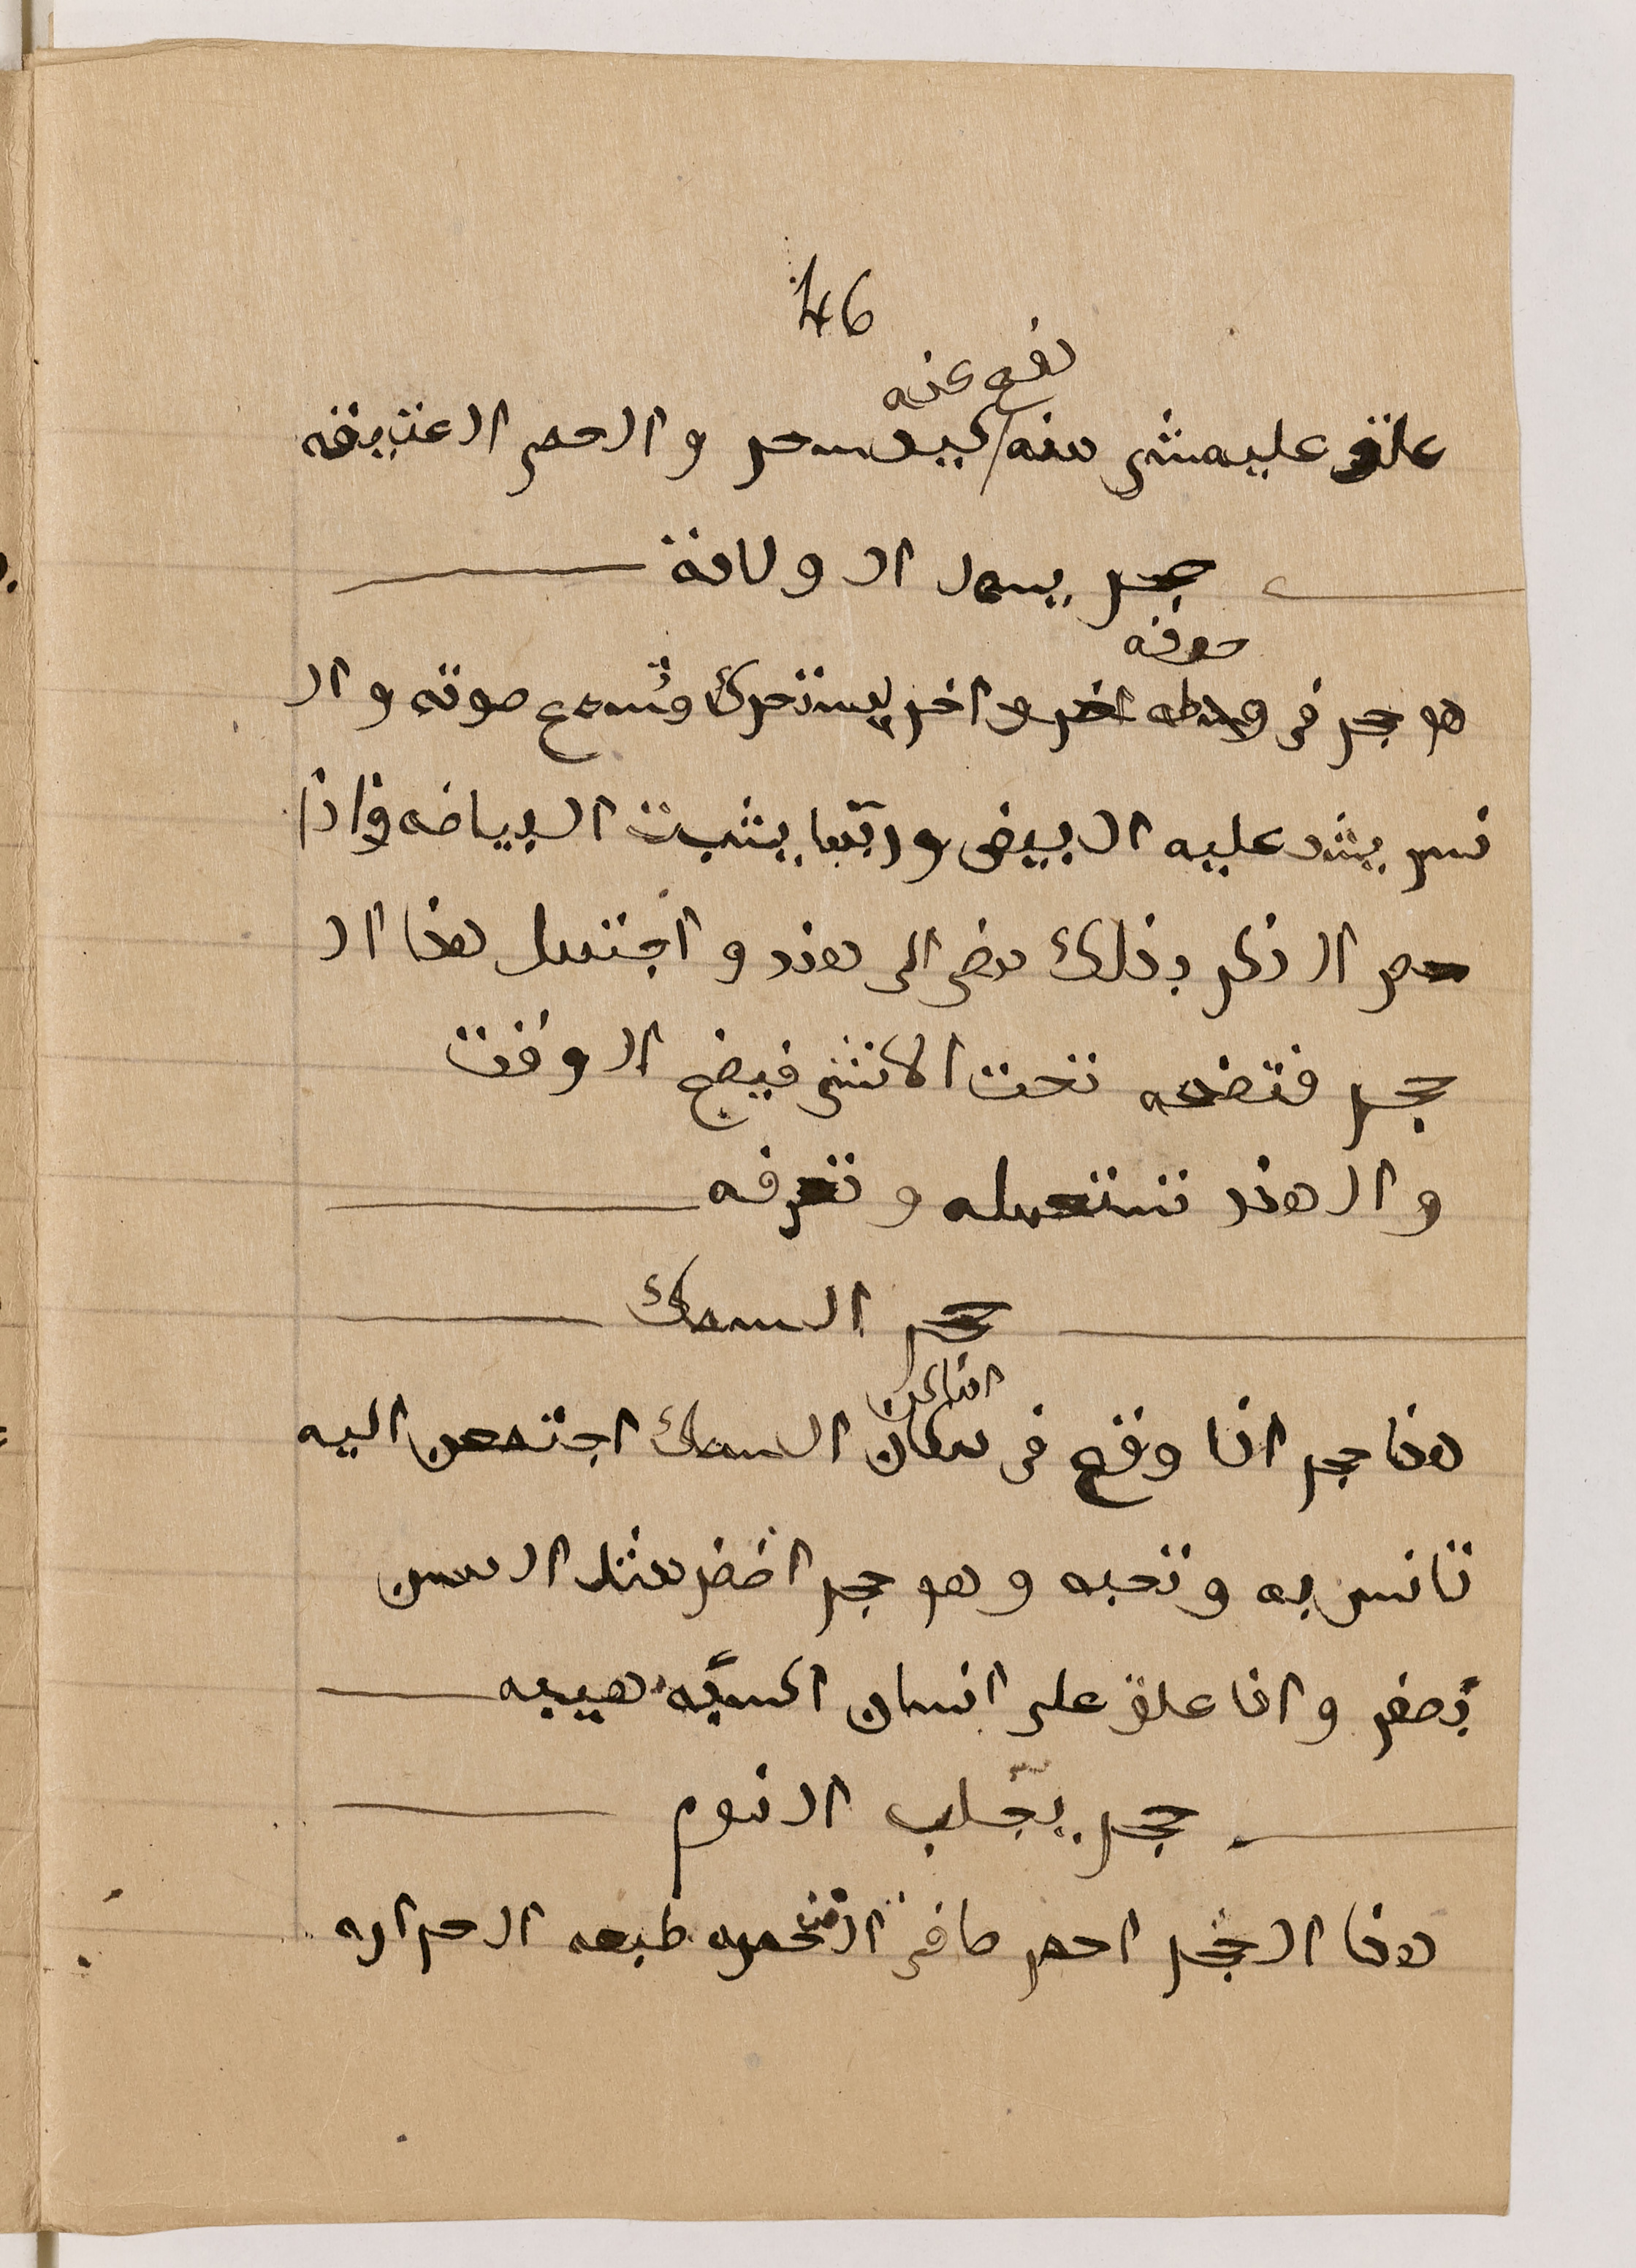 46
نفع عنه
علق عليه شى منه لبيد سحر والحصر العتيقه
حجر يسمى الولادة
جوفه
هو حجر فى وسطه حجر واخر يستحرك وتسمع صوته وال
نسر يشد عليه البيض وربما يشبت البياضه واذا
الذكر بذلك مضى الى هند واجتمل هذا ال
حجر فتضعه تحت الانثى فيضع الوقت
والهند تستعمله وتعرفه
حجر السمك
اماكن
هذا حجر اذا وقع فى مكان السمك اجتمعن اليه
تانس به وتحبه وهو حجر اخضر مثل المسن
يصفر واذا علق على انسان اكسبه هيبه
حجر يجلب النوم
هذا الحجر احمر صافى طبعه الحراره